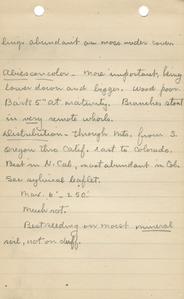 lings abundant on moss under cover.
Abies concolor - More important, being
lower down and bigger. Wood poor.
Bark 5" at maturity. Branches stout
in very remote whorls.
Distribution - Through Mts. from S.
Oregon thru Calif. east to Colorado.
Best in N. Cal, most abundant in Col.
See sylvical leaflet.
Max. 6' - 250'
Much rot.
Best seeding on moist mineral
soil, not on duff.